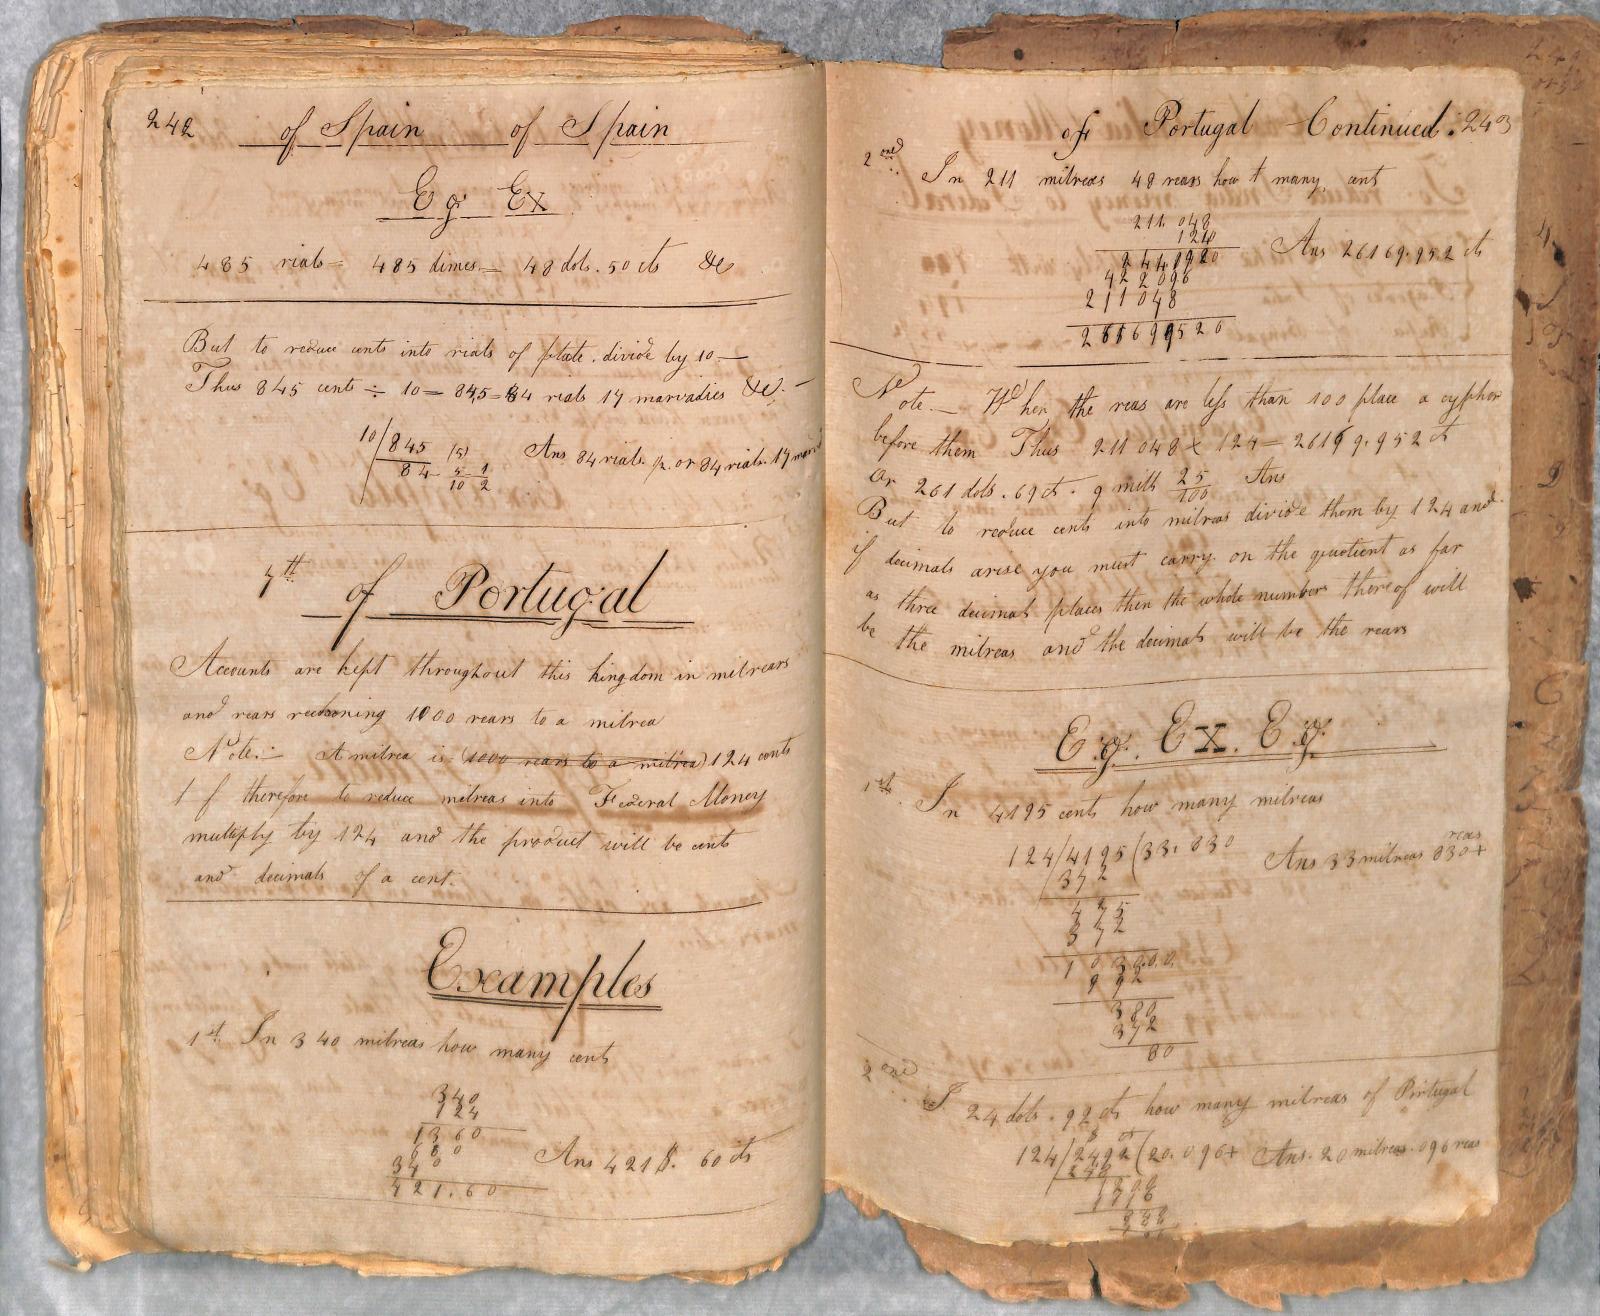 242 of Spain of Spain
Eg Ex
485 rials = 485 dimes = 48 dols. 50 cts &c
But to reduce cents into rials of plate. divide by 10 —
Thus 845 cents ÷ 10 = 84,5 = 84 rials 17 marvadies &c. —
10/845 (5)
84 5 1
10 2
Ans 84 rials. p. or 84 rials. 17 marvd
7th of Portugal
Accounts are kept throughout this kingdom in milrears
and rears reckoning 1000 rears to a milrea
Note.— A milrea is (1000 rears to a milrea) 124 cents
If therefore to reduce milreas into Federal Money
multiply by 124 and the product will be cents
and decimals of a cent.
Examples
1st In 340 milreas how many cents
340
124
1360
680
340
421.60
Ans 421$. 60 cts
of Portugal Continued. 243
2ond In 211 milreas 48 reas how t many cents
211.048
124
244192
422096
211048
26169952
Ans 26169.952 cts
Note.— When the reas are less than 100 place a cypher
before them Thus 211 048 x 124 = 26169.952 ct
Or 261 dols. 69 ct. 9 mills 25/100 Ans
But to reduce cents into milreas divide them by 124 and
if decimals arise you must carry on the quotient as far
as three decimal places then the whole numbers thereof will
be the milreas and the decimals will be the rears
Eg. Ex. Eg.
1st. In 4195 cents how many milreas
124/4195(33.830
372
475
372
103000
992
380
372
80
Ans 33 milreas 830+ reas
2ond
I 24 dols. 92 cts how many milreas of Portugal
$ ct
124/2492(20.096+ Ans. 20 milreas. 096 reas
248
1200
1116